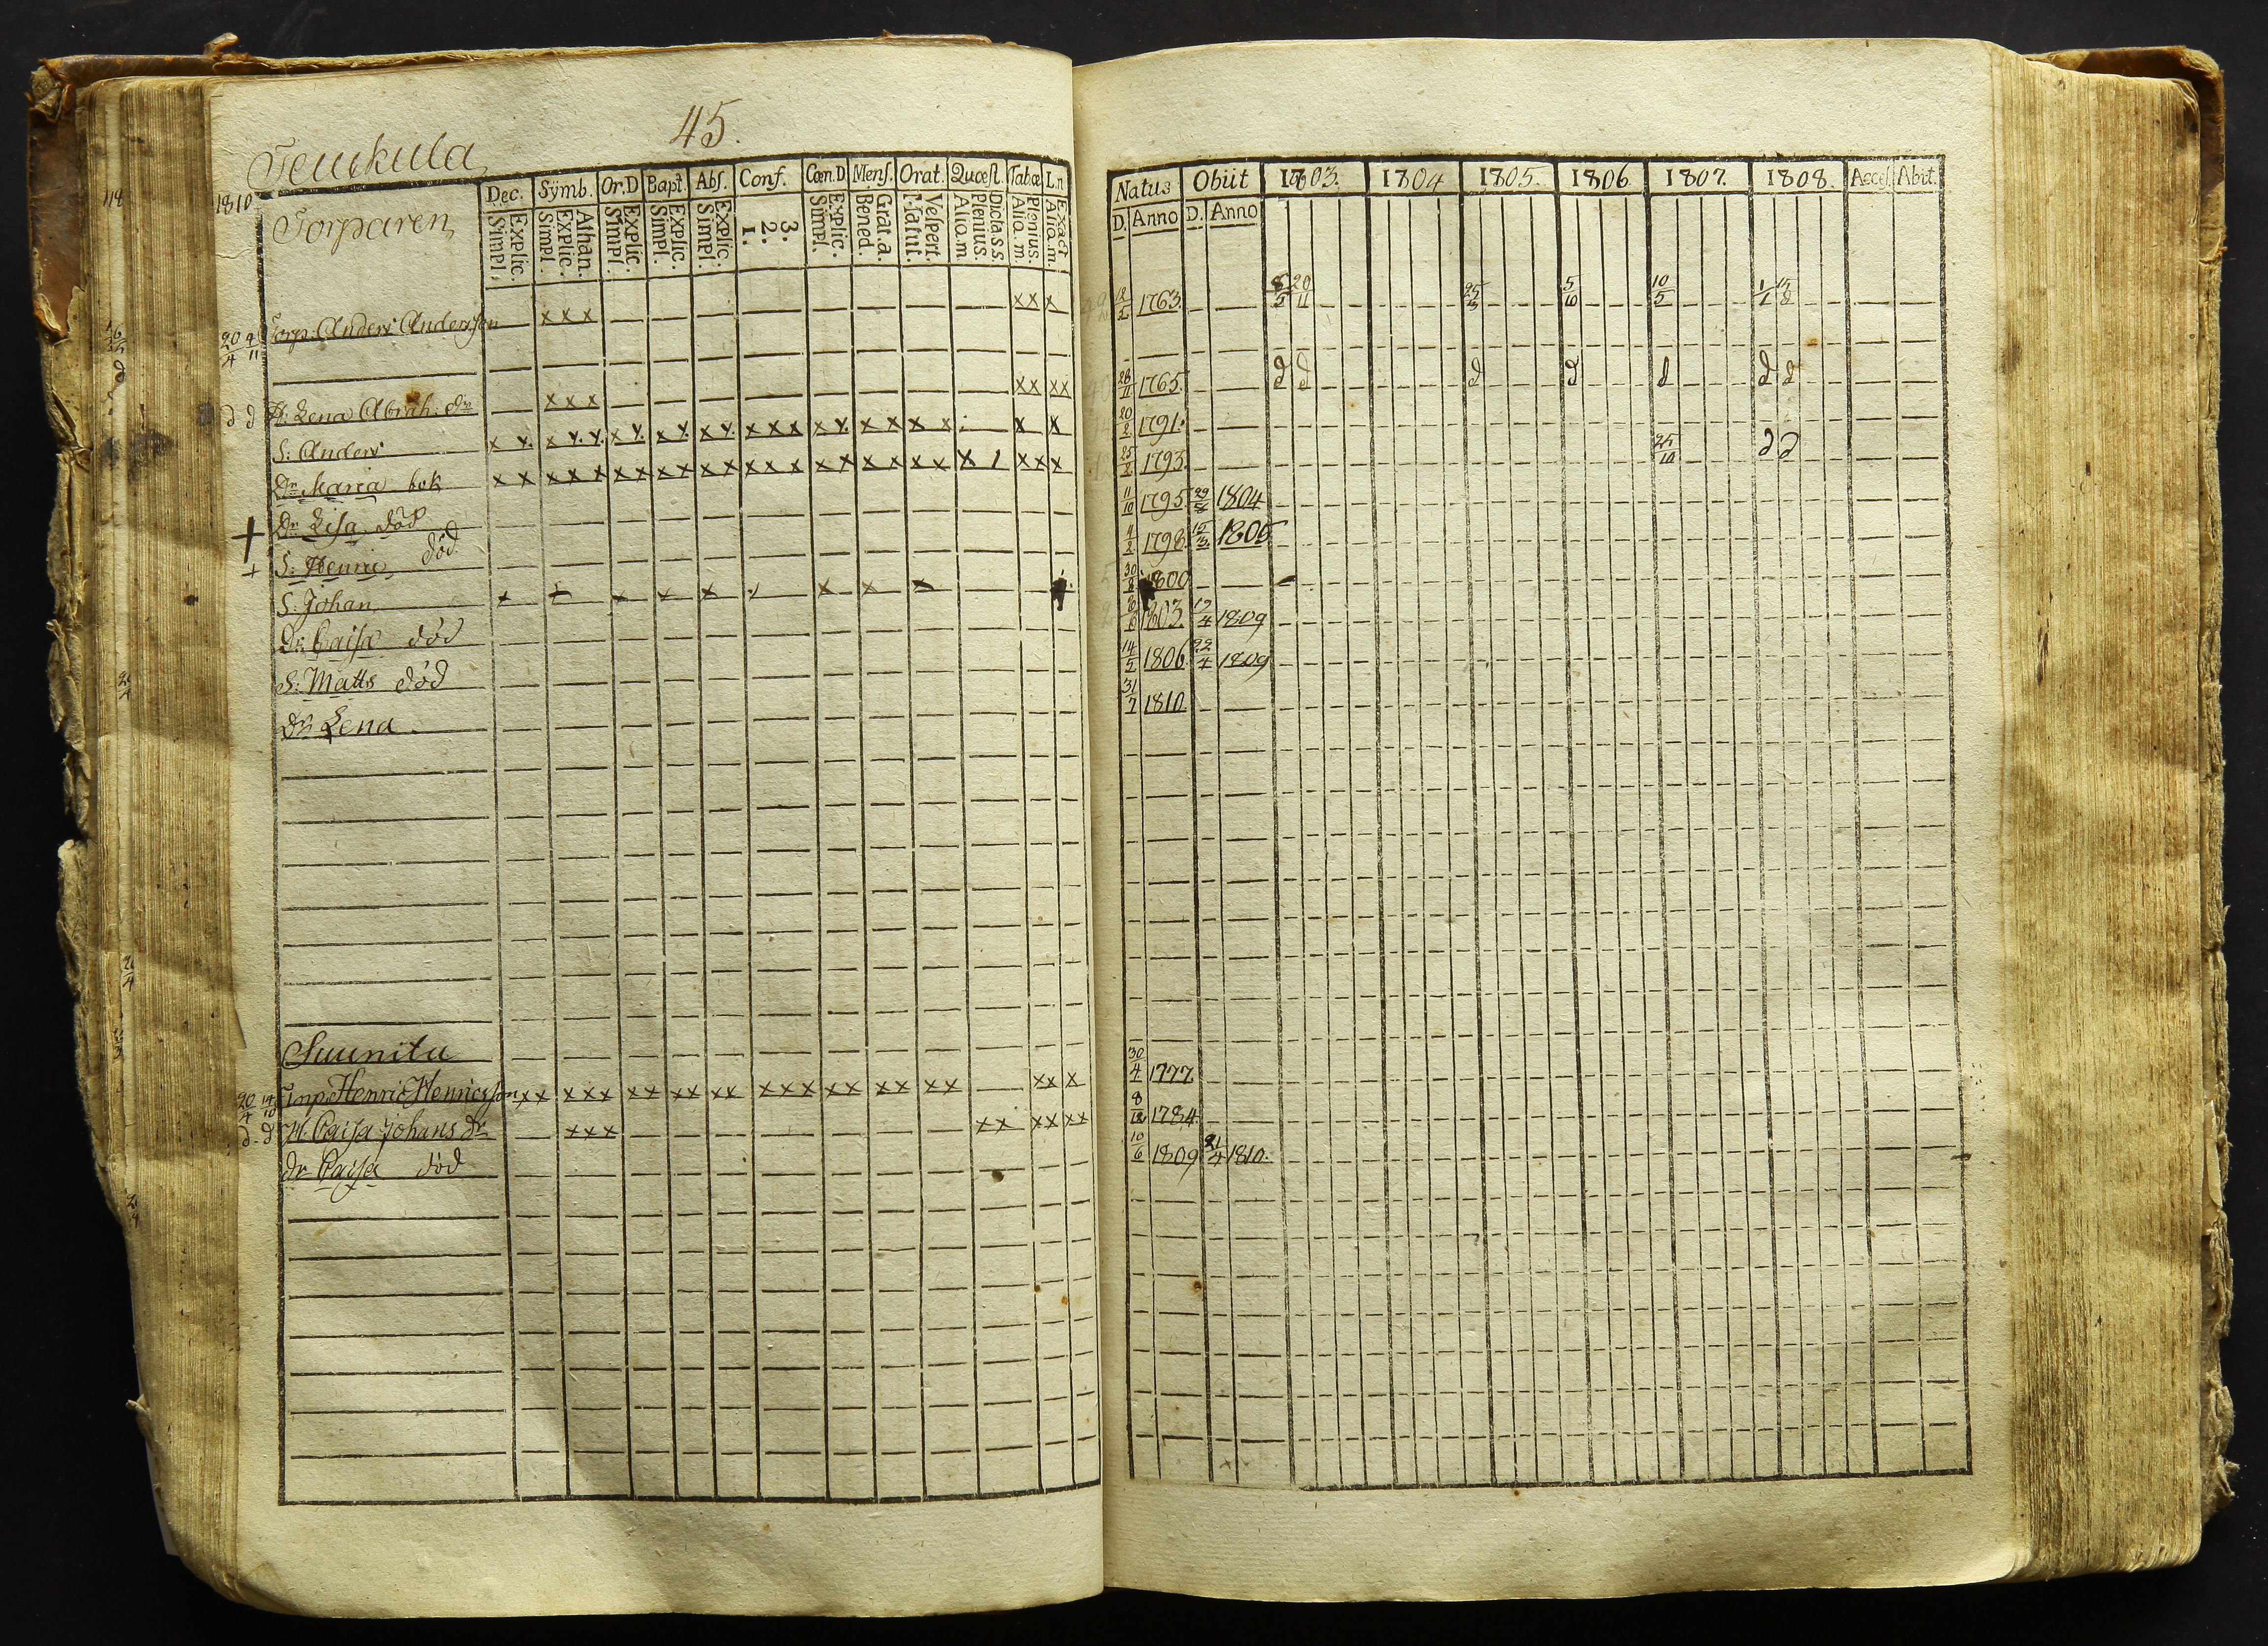 45.
1810
Torparen
Dec. Symb. Or.D Bapt. Abs. Conf. Cœn.D. Mens. Orat. Quæst. Tabæ L.n
Simpl. Explic. Simpl. Explic. Athan. Simpl. Explic. Simpl. Explic. Simpl. Explic. 1. 2. 3. Simpl. Explic. Bened. Grat.a. Matut. Vespert. Alio.m. Plenius. Dicta.s.s. Alio.m. Plenius. Alio.m. Exact.
Natus Obiit 1803. 1804 1805. 1806 1807. 1808. Acces. Abit.
D. Anno D. Anno
20/4 4/11 Torp: Anders Andersson xxx xx x 12/2 1763. 8/5 20/11 25/3 5/10 10/5 1/1 15/8
d d H: Lena Abrah. dr xxx xx xx 28/11 1765. d d d d d d d
S: Anders x x. x x. x. x x. x x. x x. x x x x x. x x x x x x 20/2 1791.
Dr Maria bok x x x x x x x x x x x x x x x x x x x x x 1 x x x 25/2 1793. 25/10 d d
+ Dr Lisa död 11/10 1795 29/8 1804
+ S: Henric död 4/2 1798. 15/3 1805
S. Johan x x x x x x x x 30/8 1800
Dr: Caisa död 1803. 17/4 1809
S: Matts död 14/5 1806. 22/4 1809
Dr Lena 31/7 1810
Suunita
20/4 14/10 Torp: Henric Henricsson xx xxx xx xx xx xxx xx xx xx xx x 30/4 1777.
d. d H. Caisa Johans dr xxx xx xx xx 8/12 1784.
dr Caisa död 10/6 1809 21/4 1810.